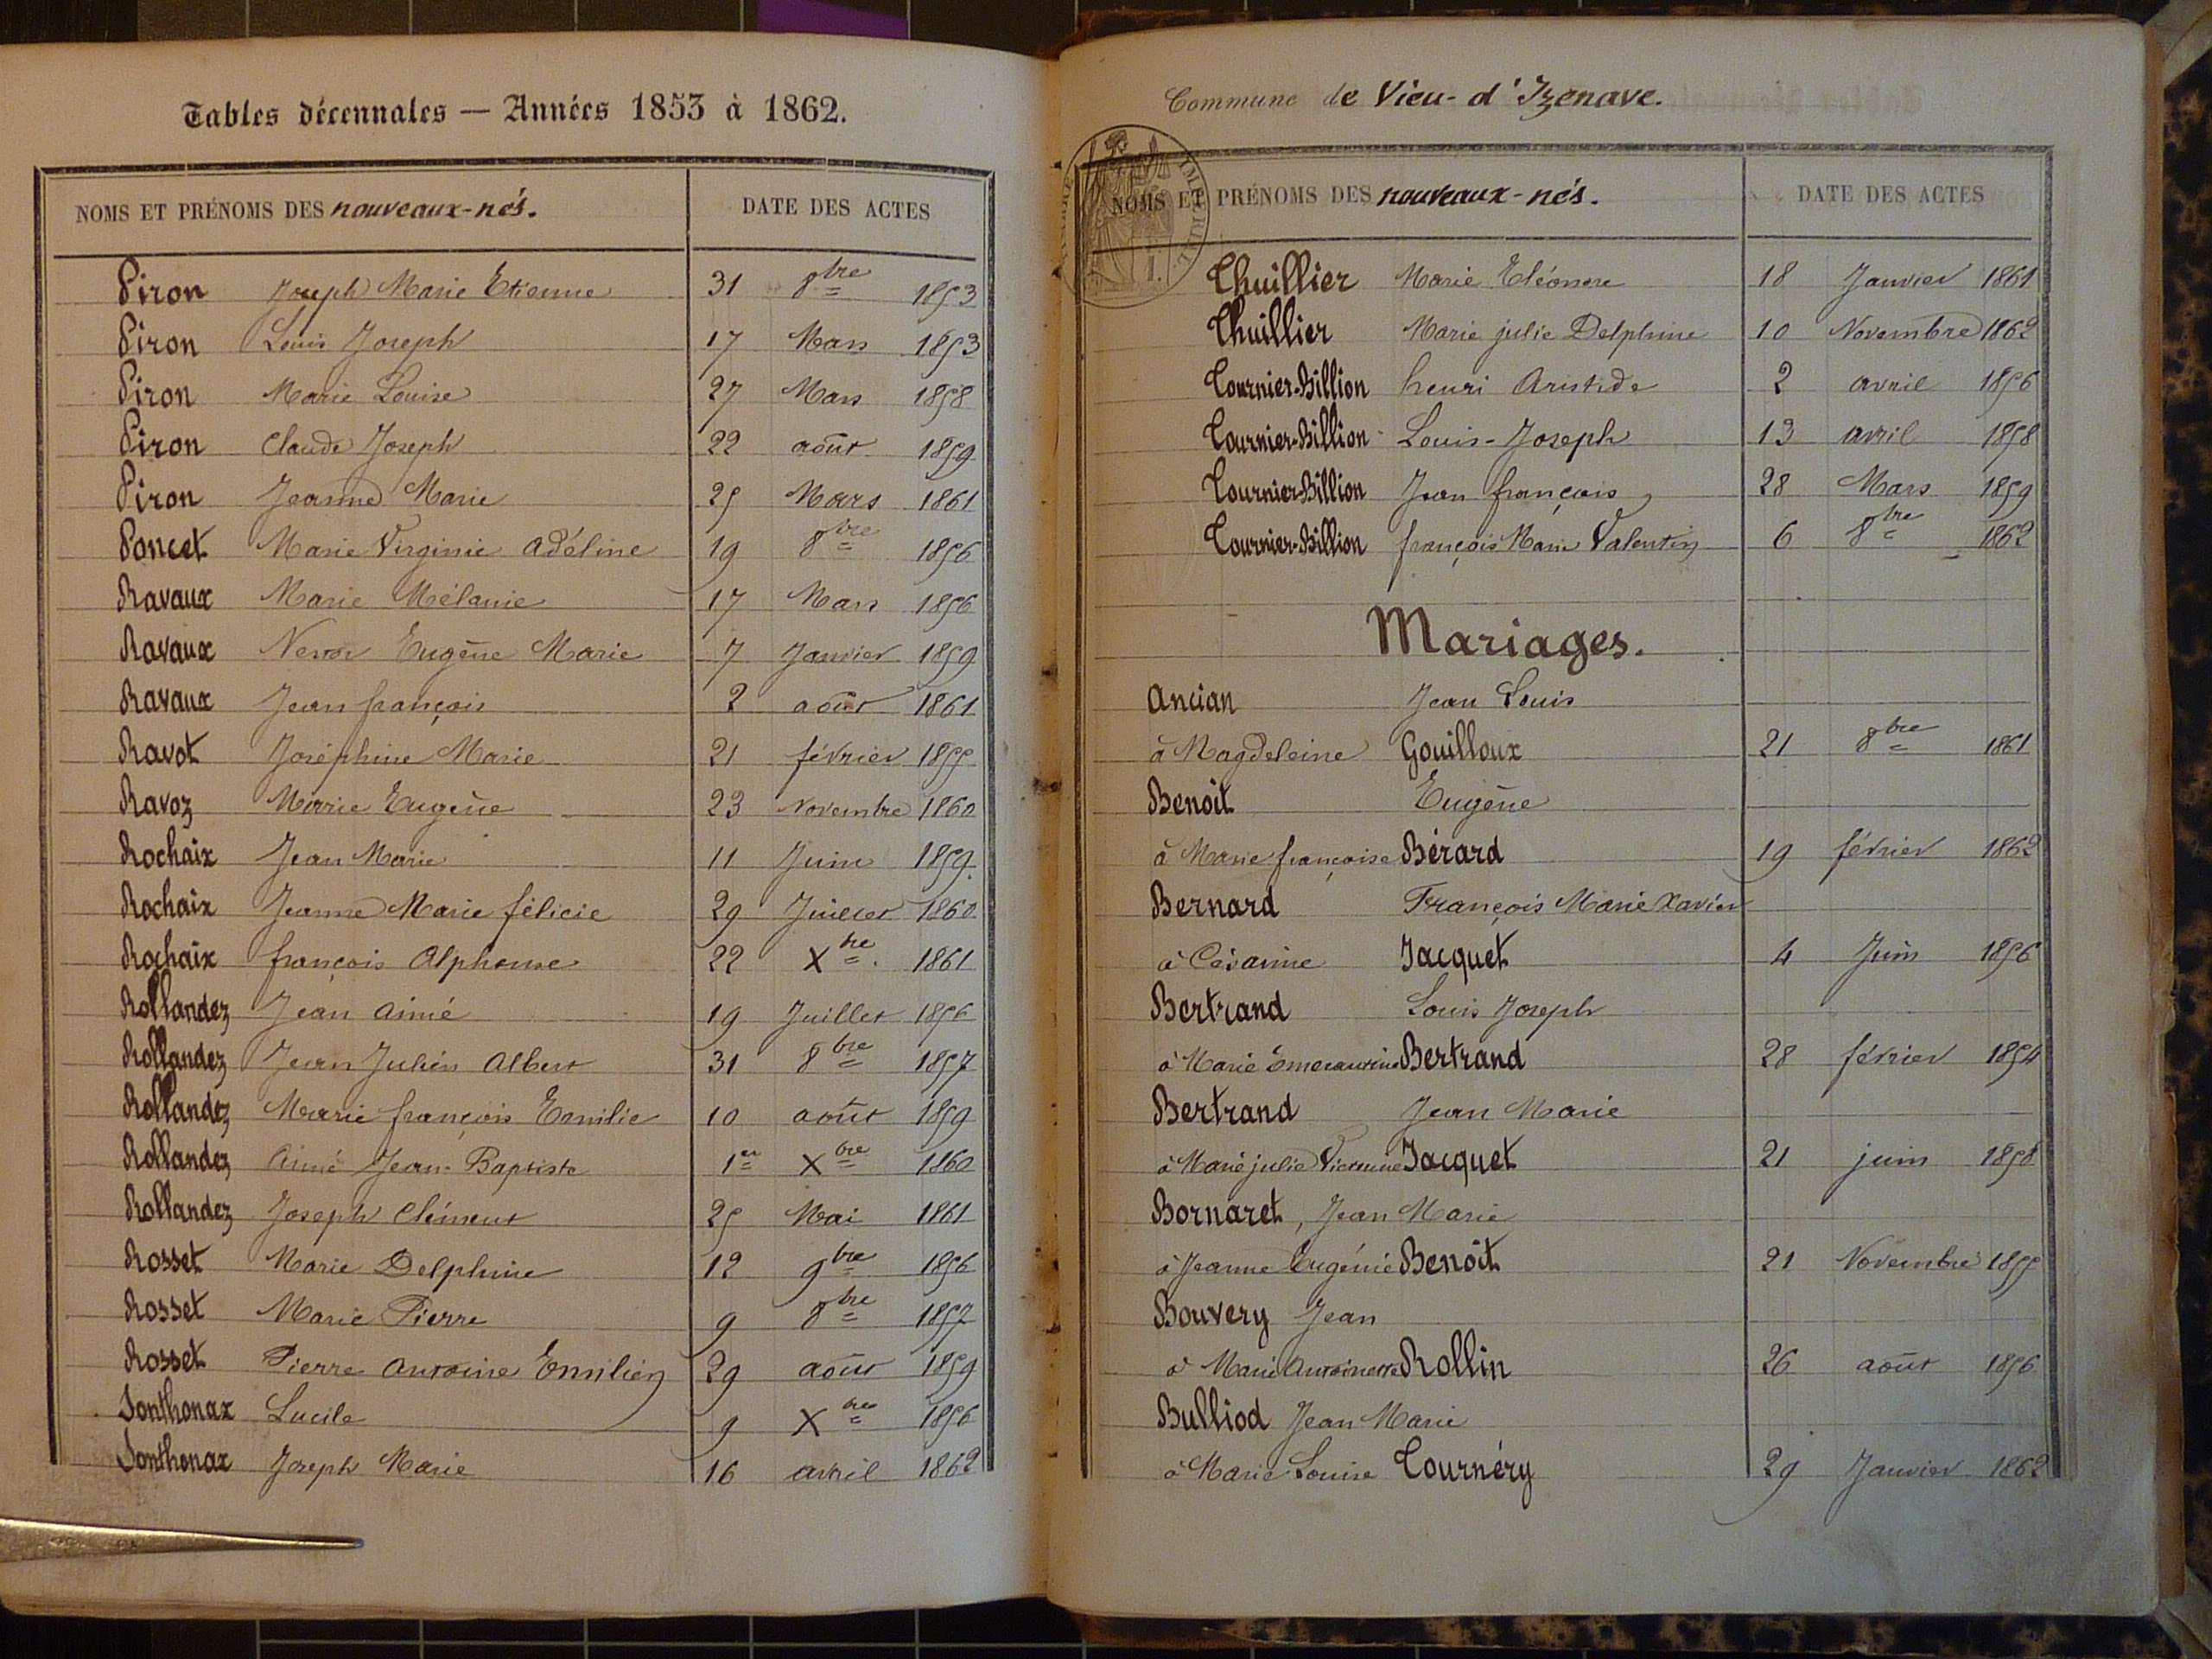 Tables décennales — Années 1853 à 1862.
NOMS ET PRÉNOMS DES nouveaux-nés. DATE DES ACTES
Piron Joseph Marie Etienne 31 8bre 1853
Piron Louis Joseph 17 Mars 1853
Piron Marie Louise 27 Mars 1858
Piron Claude Joseph 22 août 1859
Piron Jeanne Marie 25 Mars 1861
Poncet Marie Virginie Adéline 19 8bre 1856
Ravaux Marie Mélanie 17 Mars 1856
Ravaux Eugène Marie 7 Janvier 1859
Ravaux Jean françois 2 août 1861
Ravot Joséphine Marie 21 février 1855
Ravoz Marie Eugène 23 Novembre 1860
Rochaix Jean Marie 11 Juin 1859.
Rochaix Jeanne Marie félicie 29 Juillet 1860
Rochaix françois Alphonse 22 Xbre. 1861
Rollandez Jean Aimé 19 Juillet 1856
Rollandez Jean Julien Albert 31 8bre 1857
Rollandez Marie françois Emilie 10 août 1859
Rollandez Aimé Jean-Baptiste 1er Xbre 1860
Rollandez Joseph Clément 25 Mai 1861
Rosset Marie Delphine 12 9bre 1856
Rosset Marie Pierre 9 8bre 1857
Rosset Pierre Antoine Emilien 29 août 1859
Sonthonax Lucile 9 Xbre 1856
Sonthonax Joseph Marie 16 avril 1862
Commune de Vieu-d'Izenave.
NOMS ET PRÉNOMS DES nouveaux-nés. DATE DES ACTES
Thuillier Marie Eléonore 18 Janvier 1861
Thuillier Marie julie Delphine 10 Novembre 1862
Tournier-Billion henri Aristide 2 avril 1856
Tournier-Billion Louis-Joseph 13 avril 1858
Tournier-Billion Jean françois 28 Mars 1859
Tournier-Billion françois Marie Valentin 6 8bre 1862
Mariages.
Ancian Jean Louis
à Magdeleine Gouilloux 21 8bre 1861
Benoit Eugène
à Marie françoise Bérard 19 février 1862
Bernard François Marie Xavier
à Césarine Jacquet 4 Juin 1856
Bertrand Louis Joseph
à Marie Bertrand 28 février 1854
Bertrand Jean Marie
à Marie julie Jacquet 21 juin 1858
Bornaret, Jean Marie
à Jeanne Eugénie Benoît 21 Novembre 1855
Bouvery Jean
à Marie Antoinette Rollin 26 août 1856
Bulliod Jean Marie
à Marie Louise Tournéry 29 Janvier 1862